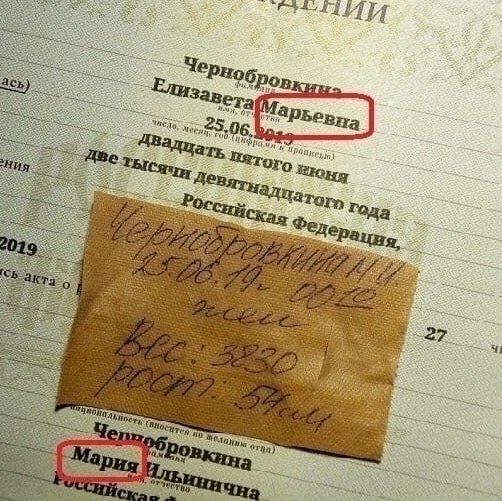 ЖДЕНИИ
Чернобровкина
фамилия
ась)
Елизавета Марьевна
имя, отчество
25.06.2019
число, месяц, год (цифрами и прописью)
двадцать пятого июня
две тысячи девятнадцатого года
ения
Российская Федерация,
2019
Чернобровкина М.И.
25.06.19г 00 10
жен
Вес: 3830
рост: 54см
ись акта о
27
национальность (вносится по желанию отца)
Чернобровкина
фамилия
Мария Ильинична
имя, отчество
Российская Фед